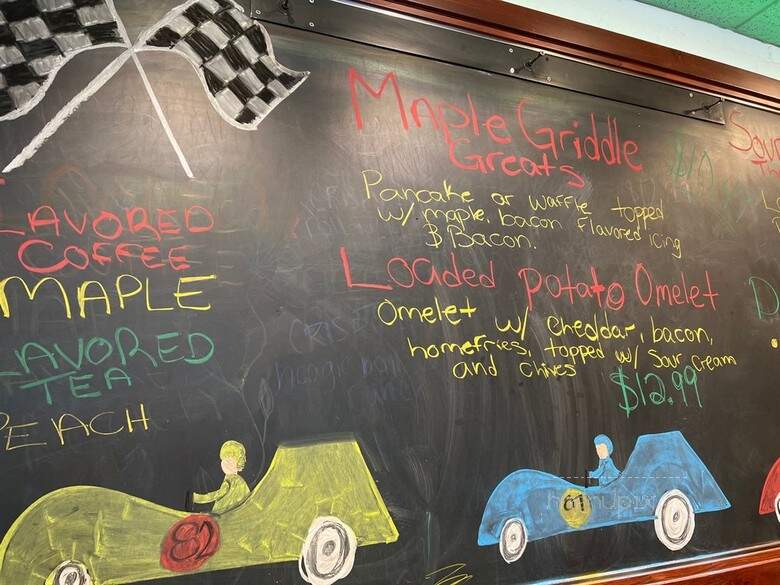 LAVORED
COFFEE
MAPLE
AVORED
TEA
PEACH
82
Maple Griddle
Greats
$10
Pancake or waffle topped
w/ maple, bacon flavored icing
$ Bacon.
Loaded potato Omelet
Omelet w/ cheddar, bacon,
homefries, topped w/ Sour cream
and chives
$12.99
Sour
Th
61